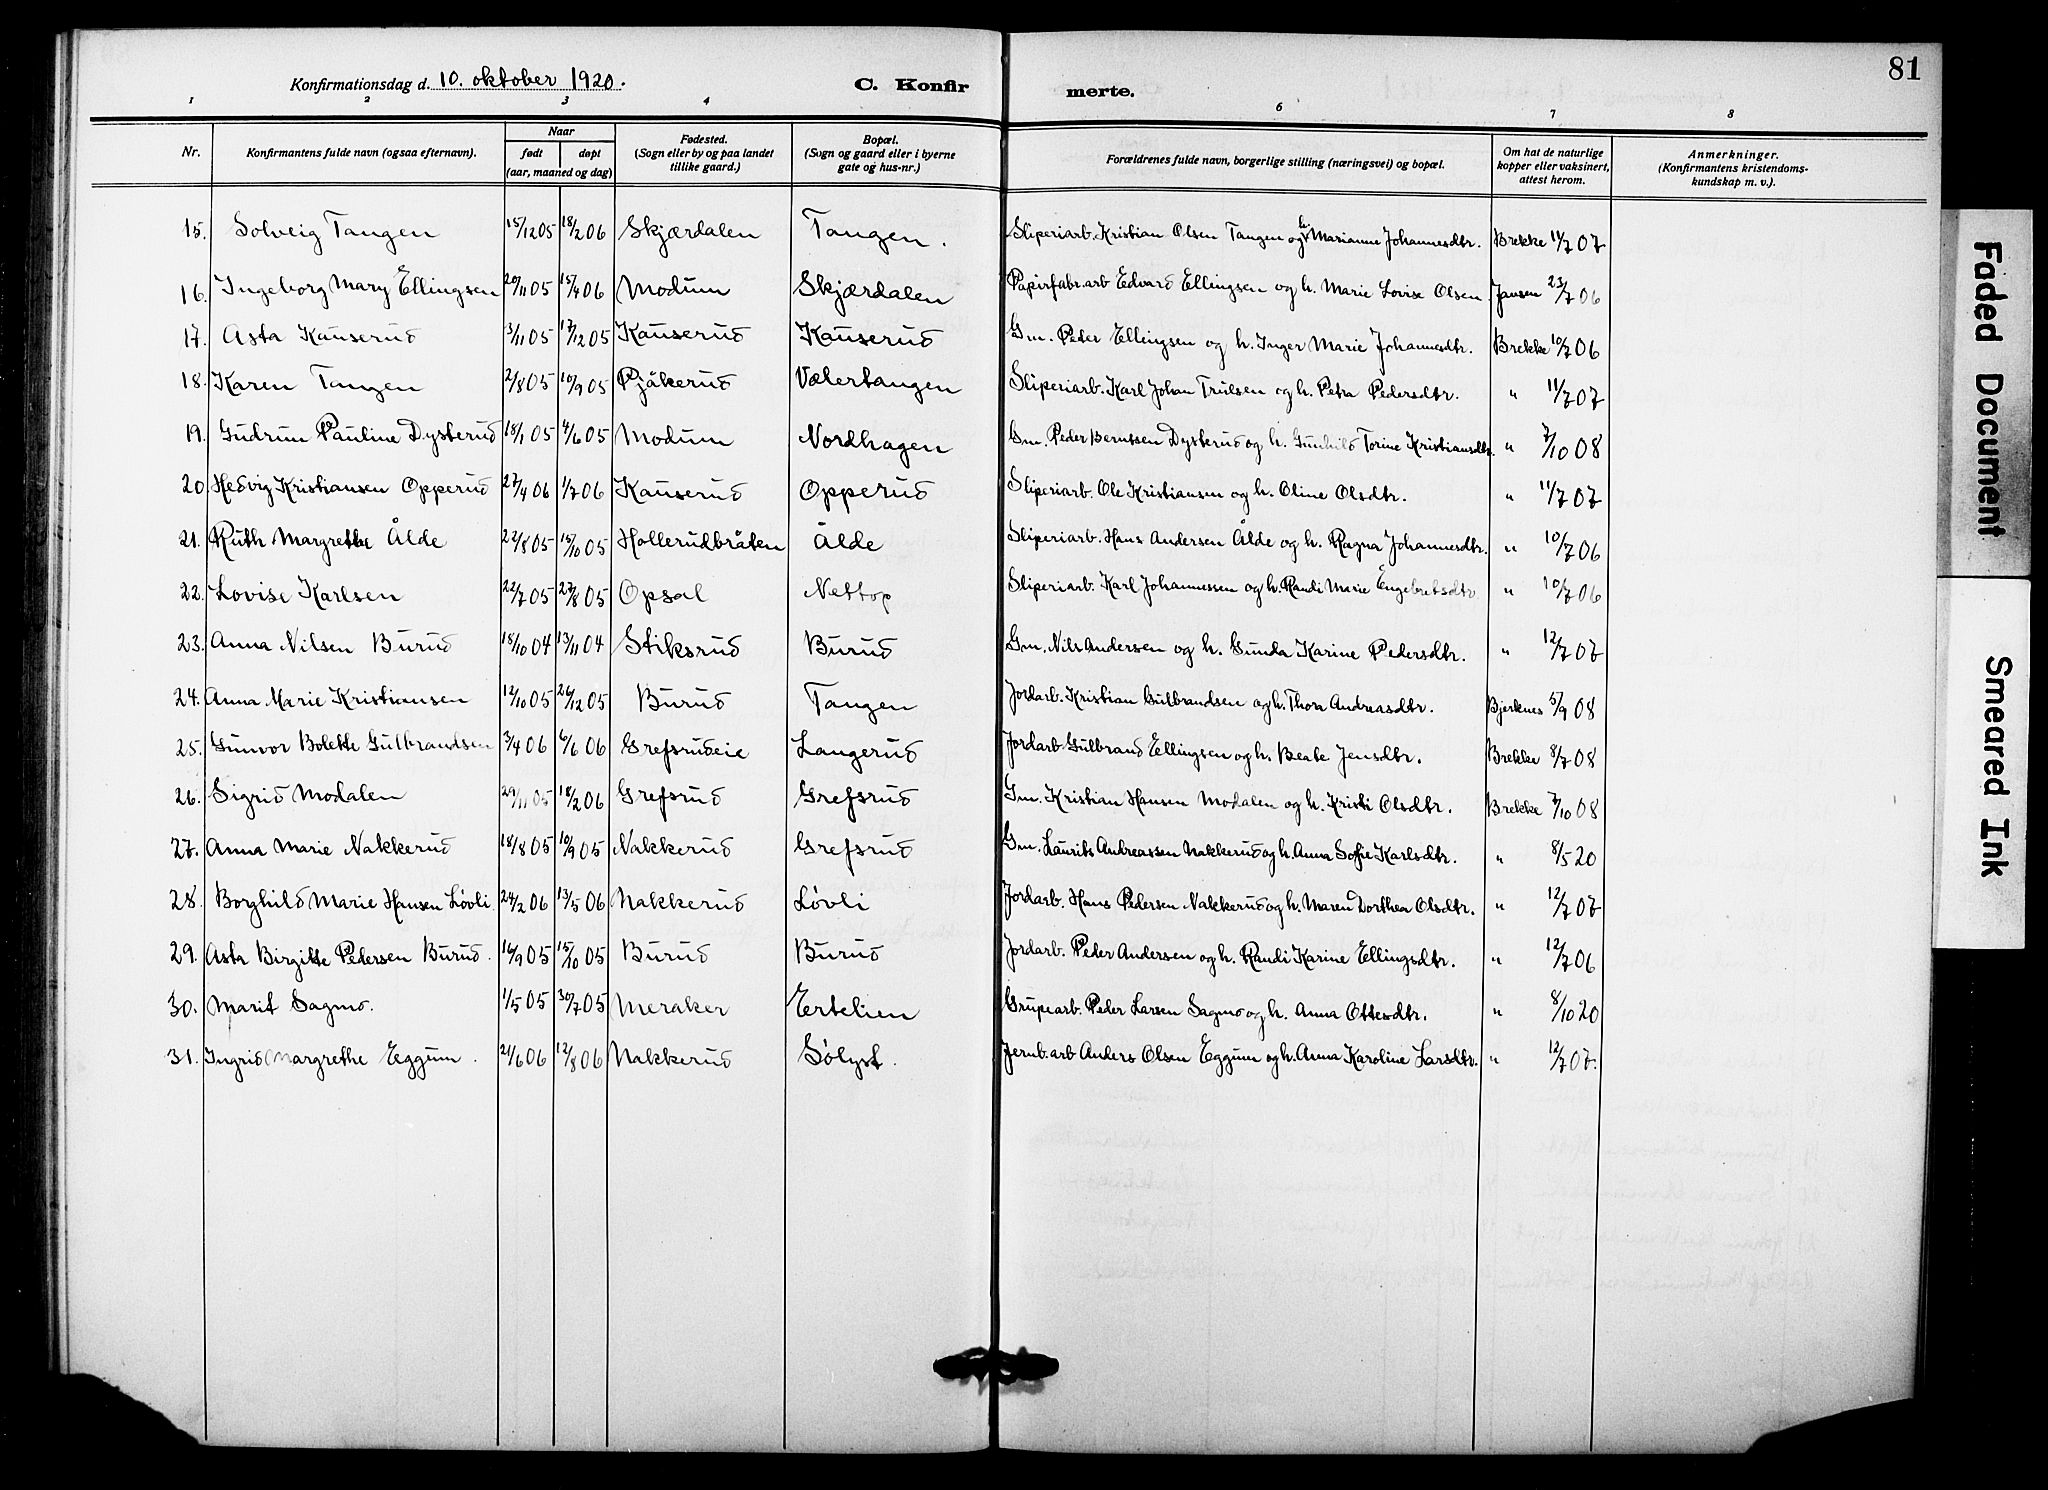 81
Konfirmationsdag d. 10. oktober 1920.
C. Konfirmerte.
1 2 3 4 6 7 8
Nr. Konfirmantens fulde navn (ogsaa efternavn). Naar født døpt (aar, maaned og dag) Fødested. (Sogn eller by og paa landet tillike gaard.) Bopæl. (Sogn og gaard eller i byerne gate og hus-nr.) Forældrenes fulde navn, borgerlige stilling (næringsvei) og bopæl. Om hat de naturlige kopper eller vaksinert, attest herom. Anmerkninger. (Konfirmantens kristendoms-kundskap m. v.).
15. Solveig Tangen 15/12 05 18/2 06 Skjærdalen Tangen. Sliperiarb. Kristian Olsen Tangen og h. Marianne Johannesdtr. Brekke 11/7 07
16. Ingeborg Mary Ellingsen 20/11 05 15/4 06 Modum Skjærdalen Papirfabr.arb Edvard Ellingsen og h. Marie Lovise Olsen Jansen 23/7 06
17. Asta Kauserud 3/11 05 17/12 05 Kauserud Kauserud Gm. Peder Ellingsen og h. Inger Marie Johannesdtr. Brekke 10/7 06
18. Karen Tangen 2/8 05 10/9 05 Pjåkerud Vælertangen Sliperiarb. Karl Johan Trulsen og h. Petra Pedersdtr. " 11/7 07
19. Gudrun Pauline Dysterud 18/1 05 4/6 05 Modum Nordhagen Gm. Peder Berntsen Dysterud og h. Gunhild Torine Kristiansdtr. " 7/10 08
20. Hedvig Kristiansen Opperud 27/4 06 1/7 06 Kauserud Opperud Sliperiarb. Ole Kristiansen og h. Oline Olsdtr. " 11/7 07
21. Ruth Margrethe Ålde 22/8 05 15/10 05 Hollerudbråten Ålde Sliperiarb. Hans Andersen Ålde og h. Ragna Johannesdtr. " 10/7 06
22. Lovise Karlsen 22/7 05 27/8 05 Opsal Nettop Sliperiarb. Karl Johannessen og h. Randi Marie Engebretsdtr " 10/7 06
23. Anna Nilsen Burud 18/10 04 13/11 04 Stiksrud Burud Gm. Nils Andersen og h. Gunda Karine Pedersdtr. " 12/7 07
24. Anna Marie Kristiansen 12/10 05 26/12 05 Burud Tangen Jordarb. Kristian Gulbrandsen og h. Thora Andreasdtr. Bjerknes 5/9 08
25. Gunvor Bolette Gulbrandsen 3/4 06 6/6 06 Grefsrudeie Langerud Jordarb Gulbrand Ellingsen og h. Beate Jensdtr. Brekke 8/7 08
26. Sigrid Modalen 29/11 05 18/2 06 Grefsrud Grefsrud Gm. Kristian Hansen Modalen og h. Kristi Olsdtr. Brekke 7/10 08
27. Anna Marie Nakkerud 18/8 05 10/9 05 Nakkerud Grefsrud Gm. Laurits Andreassen Nakkerud og h. Anna Sofie Karlsdtr. " 8/5 20
28. Borghild Marie Hansen Løvli. 24/2 06 13/5 06 Nakkerud Løvli Jordarb. Hans Pedersen Nakkerud og h. Maren Dorthea Olsdtr. " 12/7 07
29. Asta Birgitte Pedersen Burud. 16/9 05 15/10 05 Burud Burud Jordarb. Peder Andersen og h. Randi Karine Ellingsdtr. " 12/7 06
30. Marit Sagmo. 1/5 05 30/7 05 Meraker Ertelien Grupearb. Peder Larsen Sagmo og h. Anna Ottesdtr. " 8/10 20
31. Ingrid Margrethe Eggum. 21/6 06 12/8 06 Nakkerud Sølyst. Jernb.arb Anders Olsen Eggum og h. Anna Karoline Larsdtr. " 12/7 07.
Faded Document
Smeared Ink